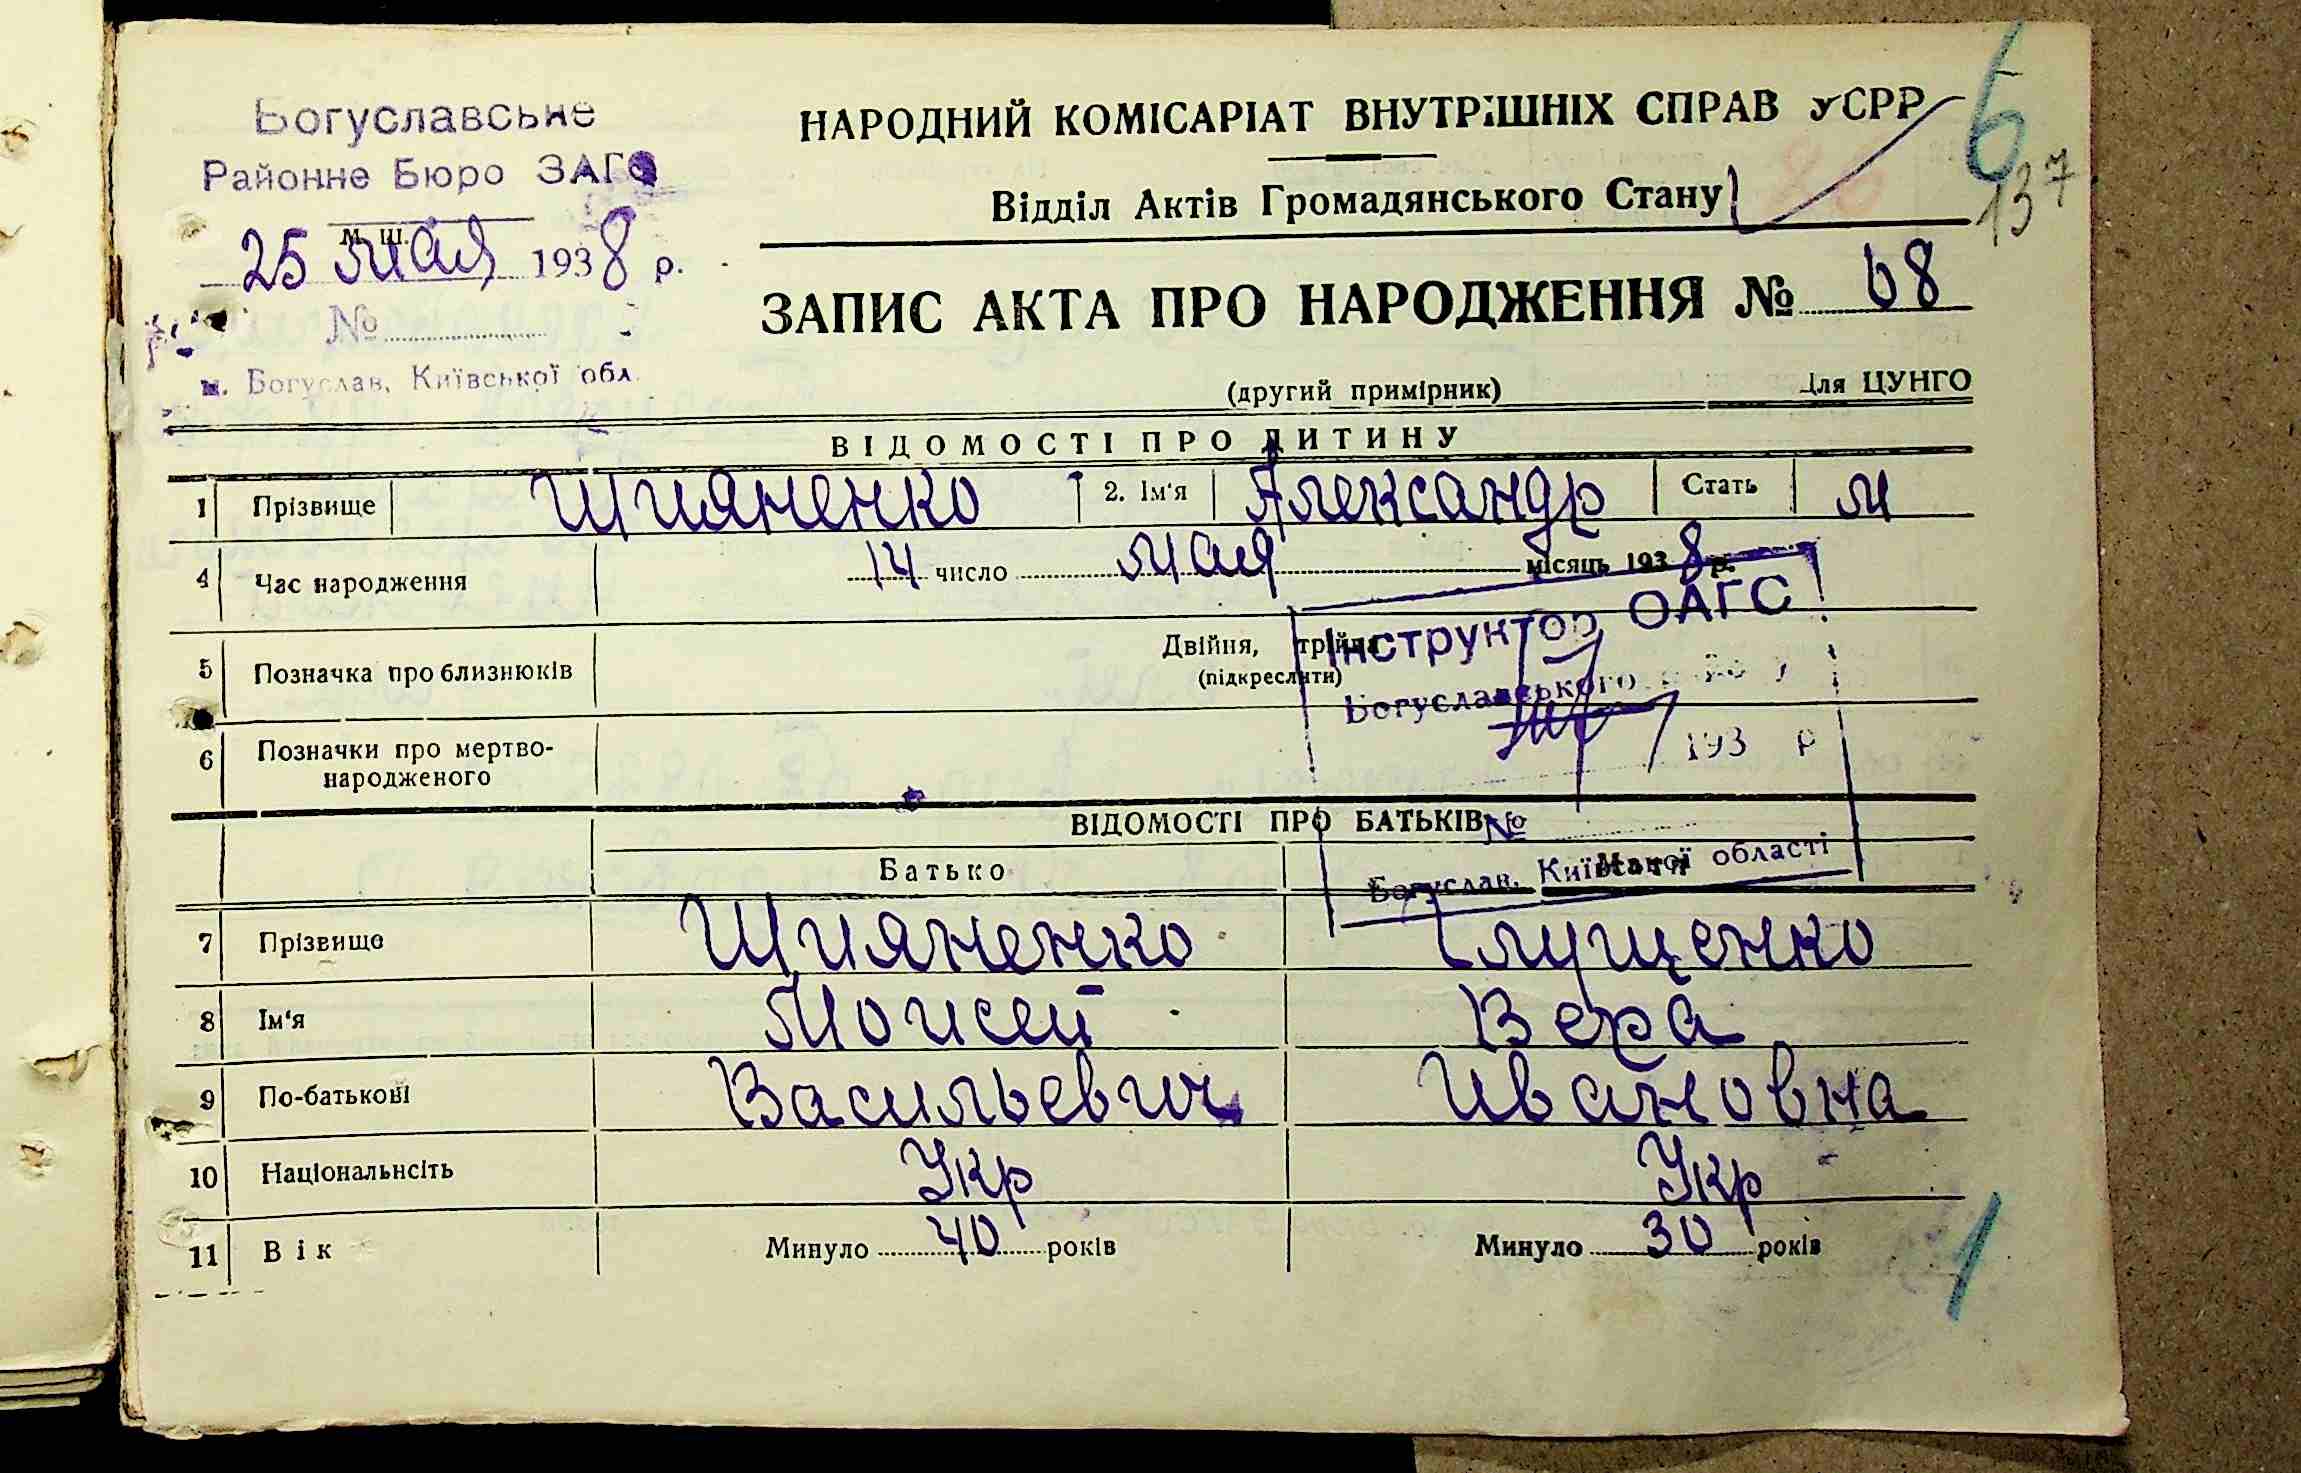 Богуславське
Районне Бюро ЗАГС
25 мая 1938 р.
№
м. Богуслав, Київської обл.
6
137
НАРОДНИЙ КОМІСАРІАТ ВНУТРІШНІХ СПРАВ УСРР
Відділ Актів Громадянського Стану
ЗАПИС АКТА ПРО НАРОДЖЕННЯ № 68
(другий примірник) Для ЦУНГО
ВІДОМОСТІ ПРО ДИТИНУ
1 Прізвище Шияненко 2. Ім'я Александр Стать м
4 Час народження 14 число мая місяць 1938 р.
5 Позначка про близнюків Двійня, трійня
(підкреслити)
Інструктор ОАГС
Богуславського
193 р
№
Богуслав, Київської області
6 Позначки про мертво-
народженого
ВІДОМОСТІ ПРО БАТЬКІВ
Батько Мати
7 Прізвище Шияненко Глущенко
8 Ім'я Моисей Вера
9 По-батькові Васильевич Ивановна
10 Національнсіть Укр Укр
11 Вік Минуло 40 років Минуло 30 років
1